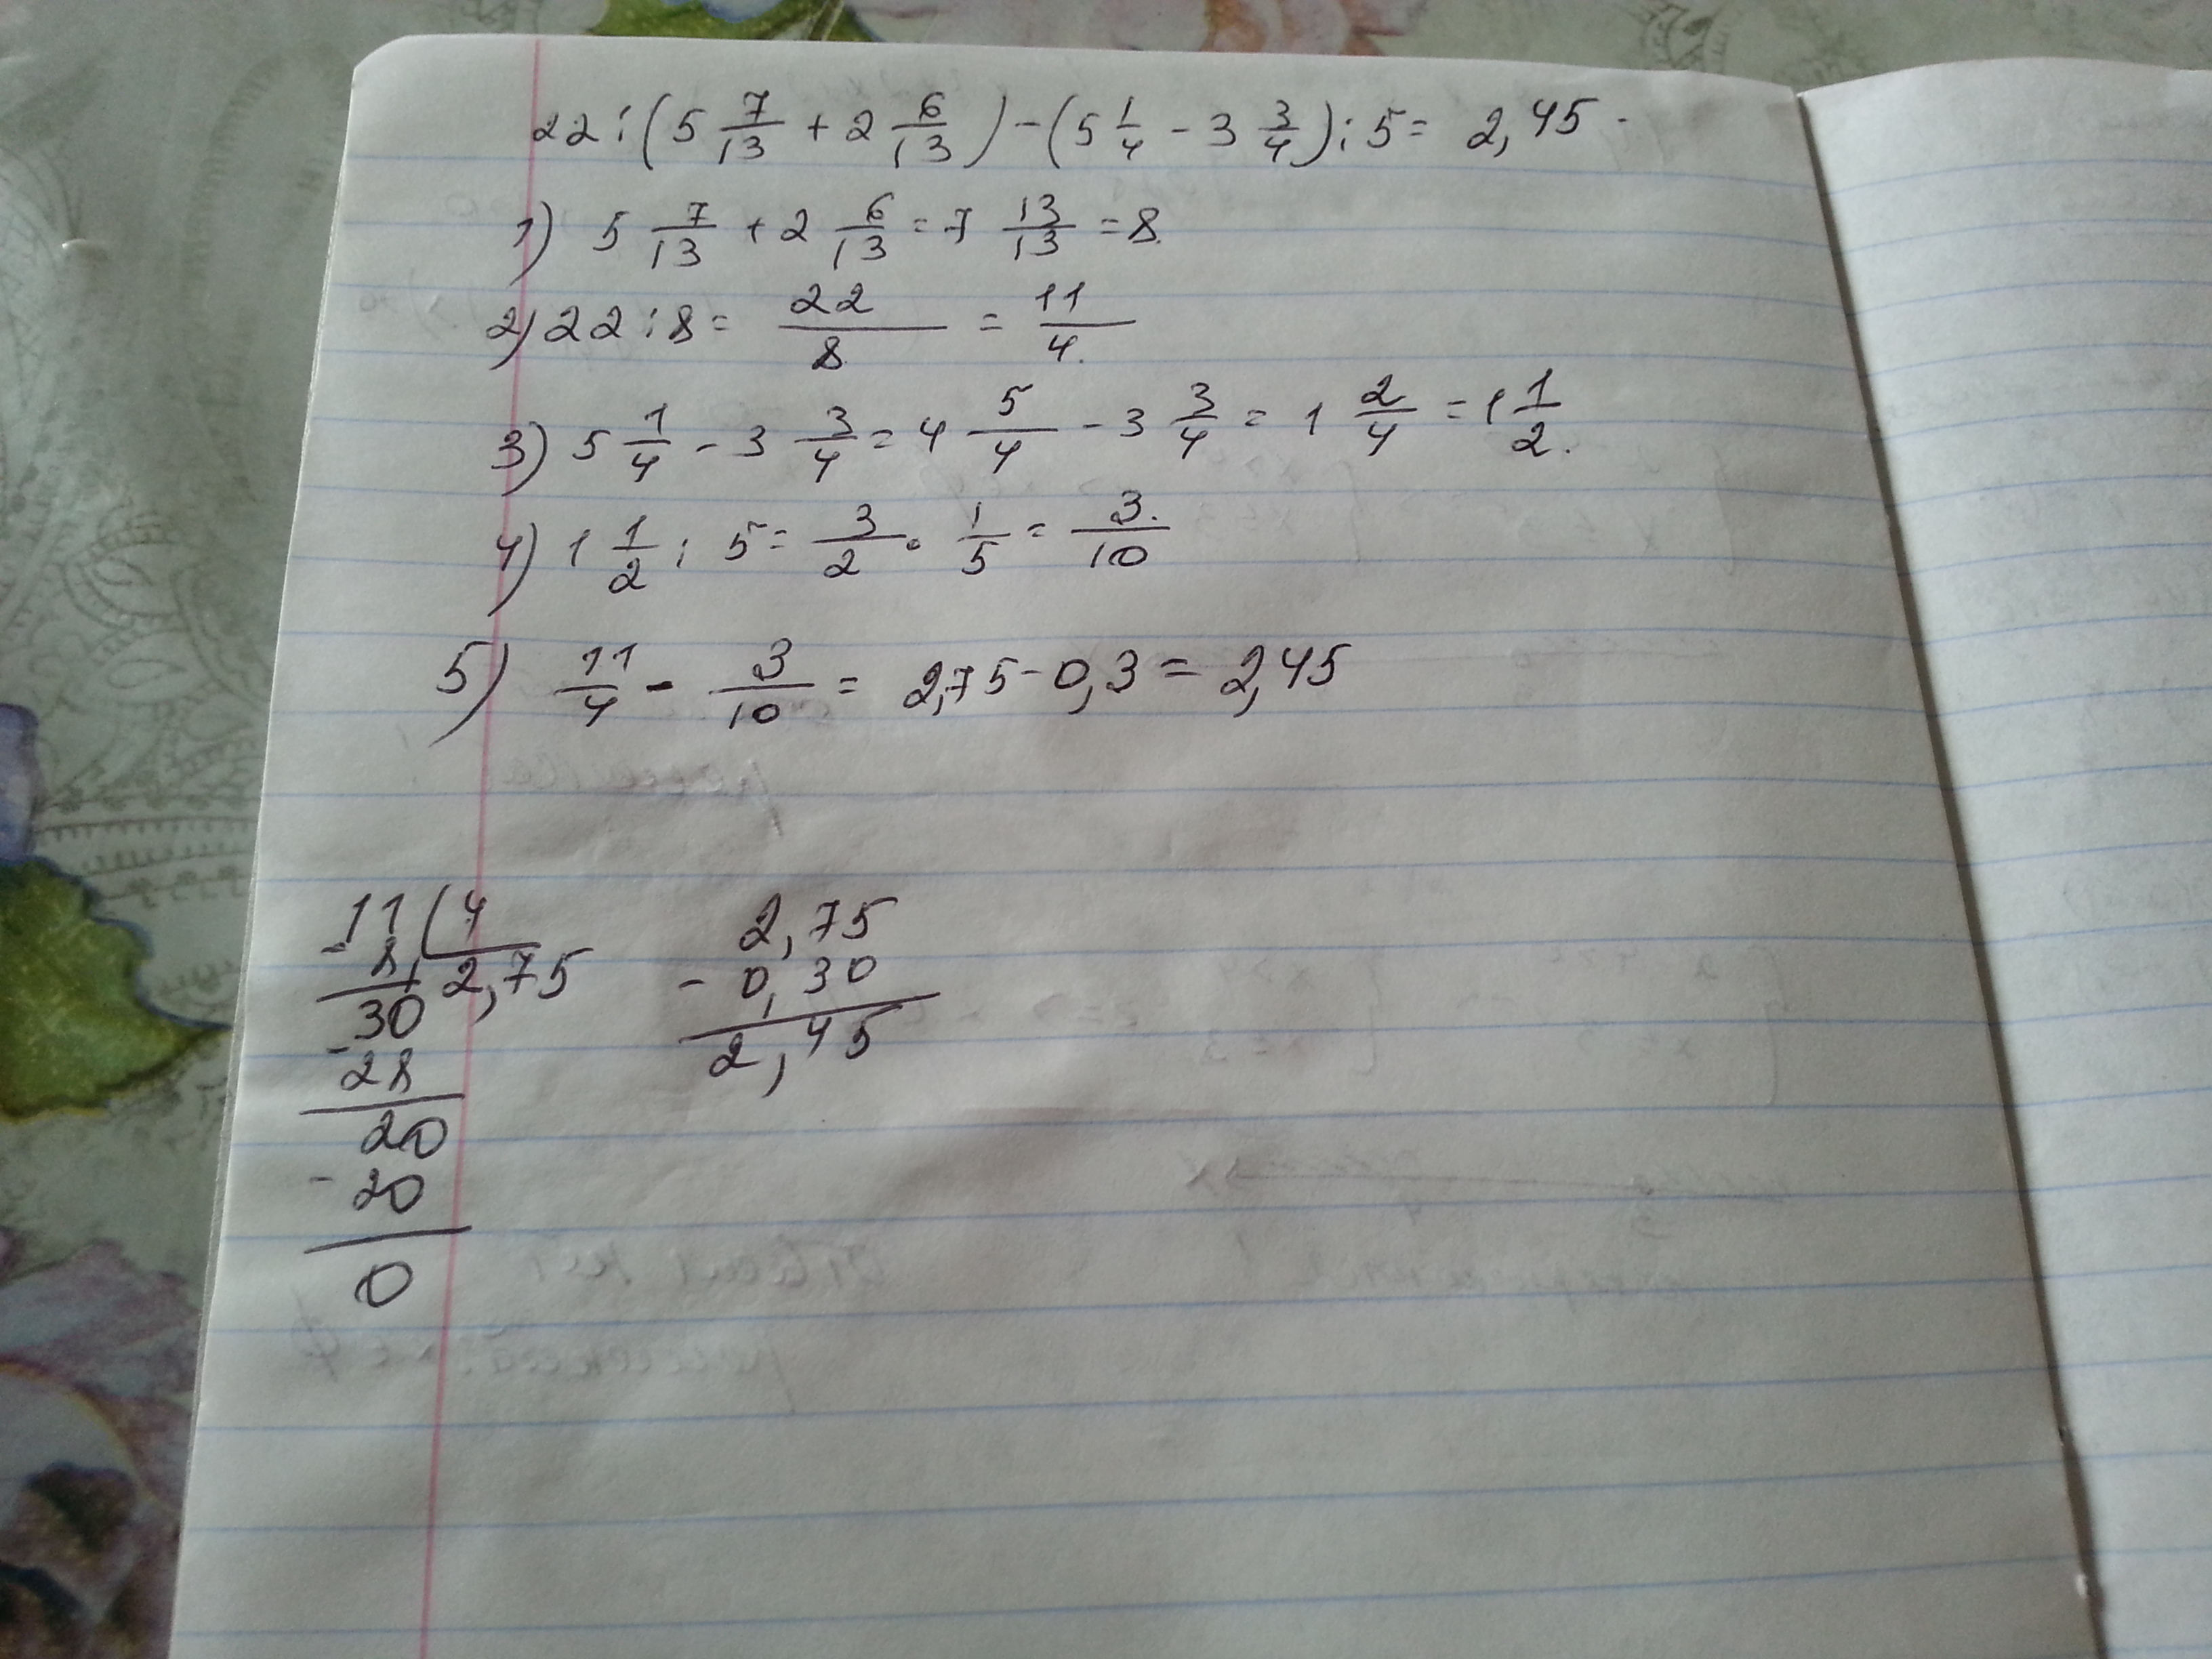 22 : (5 7/13 + 2 6/13) - (5 1/4 - 3 3/4) : 5 = 2,45.
1) 5 7/13 + 2 6/13 = 7 13/13 = 8.
2) 22 : 8 = 22/8 = 11/4.
3) 5 1/4 - 3 3/4 = 4 5/4 - 3 3/4 = 1 2/4 = 1 1/2.
4) 1 1/2 : 5 = 3/2 · 1/5 = 3/10
5) 11/4 - 3/10 = 2,75 - 0,3 = 2,45
11 | 4
- 8, 2,75
30
- 28
20
- 20
0
2,75
- 0,30
2,45